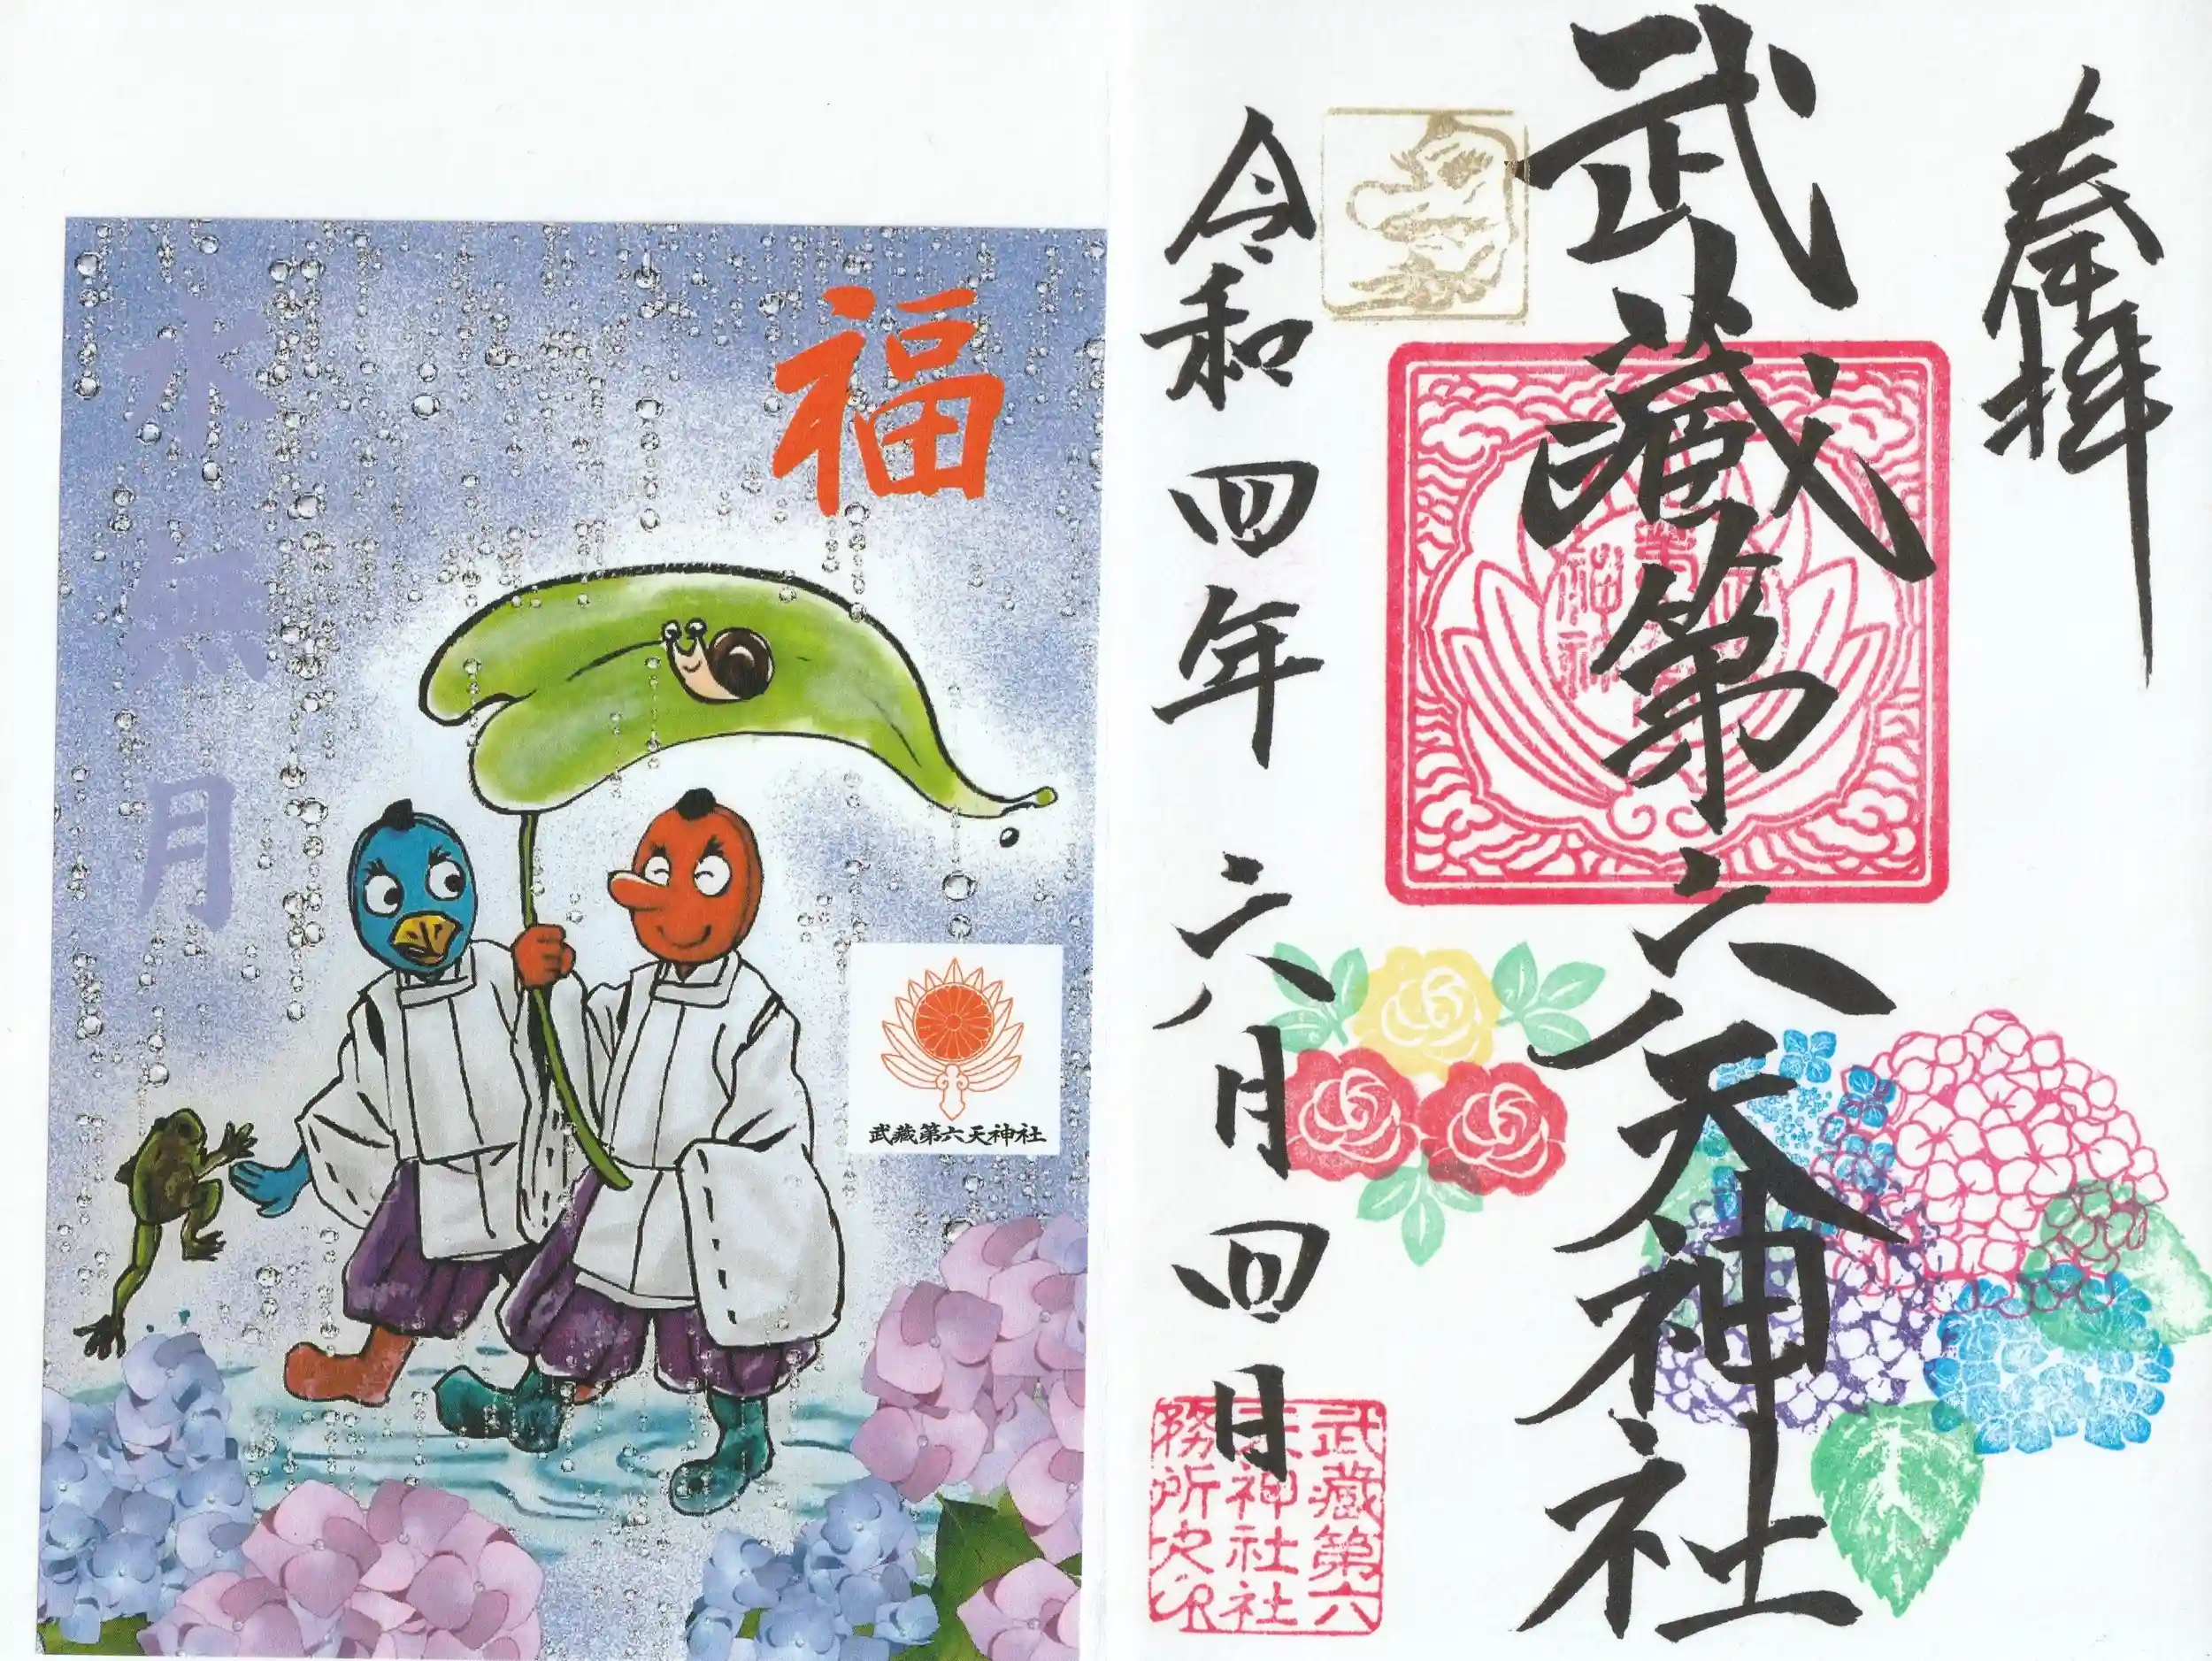 奉拝
武蔵第六天神社
令和四年六月四日
武蔵第六
天神社社
務所之印
福
水無月
武蔵第六天神社